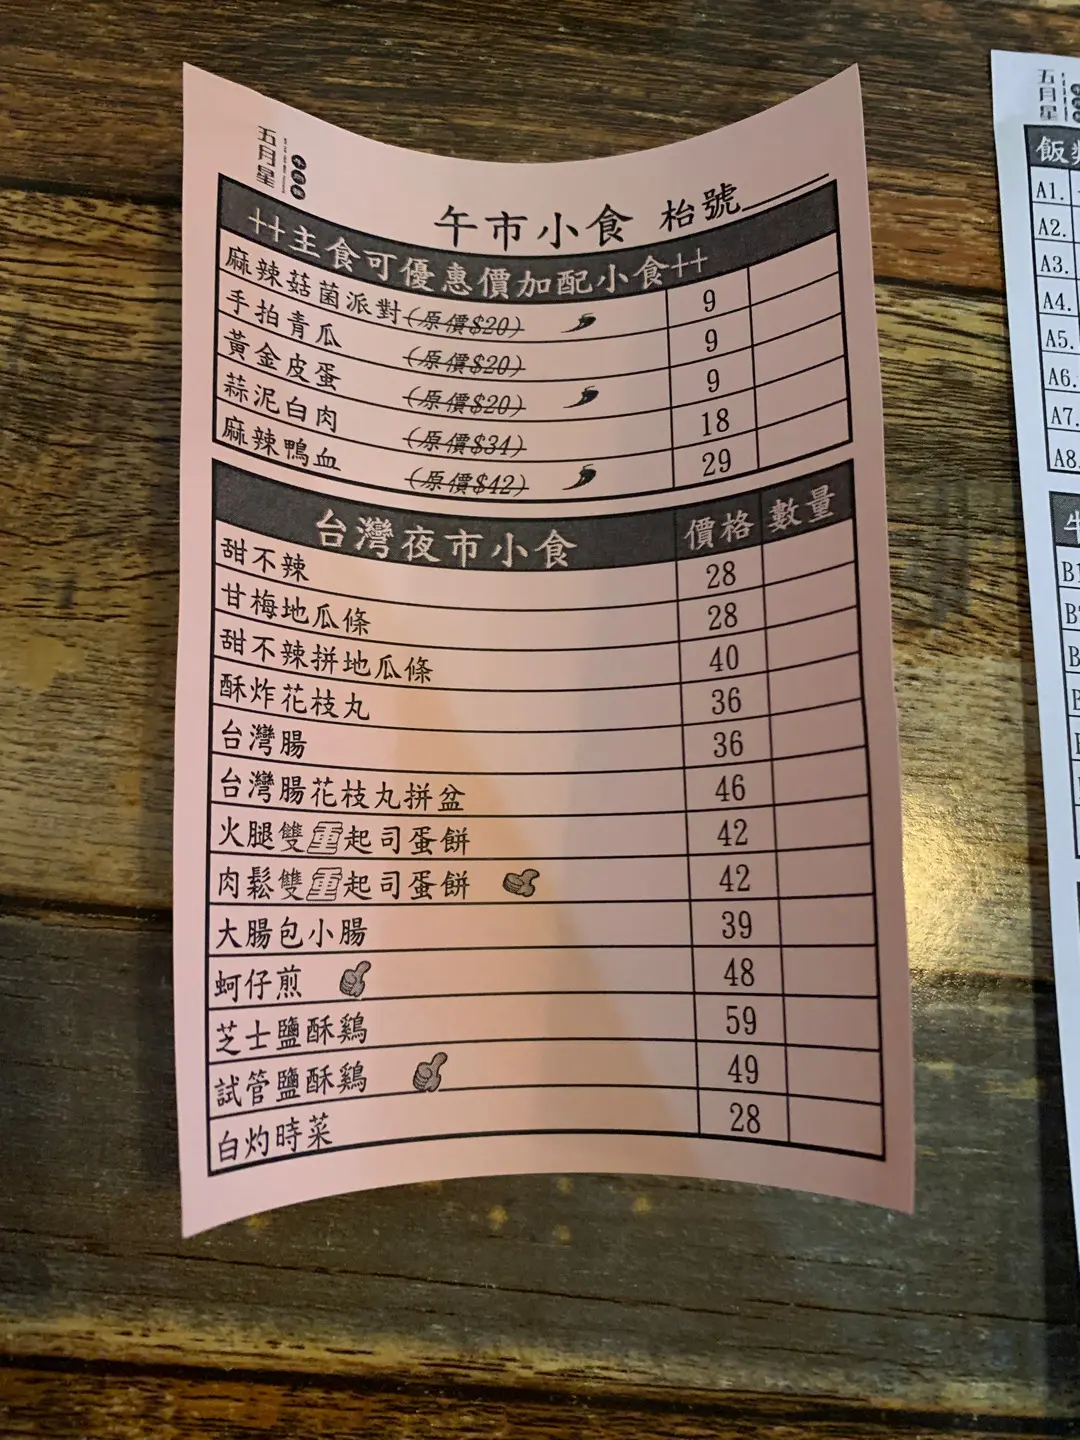 五月星
午市小食 枱號
++主食可優惠價加配小食++
麻辣菇菌派對(原價$20) 9
手拍青瓜 (原價$20) 9
黃金皮蛋 (原價$20) 9
蒜泥白肉 (原價$34) 18
麻辣鴨血 (原價$42) 29
台灣夜市小食 價格 數量
甜不辣 28
甘梅地瓜條 28
甜不辣拼地瓜條 40
酥炸花枝丸 36
台灣腸 36
台灣腸花枝丸拼盆 46
火腿雙重起司蛋餅 42
肉鬆雙重起司蛋餅 42
大腸包小腸 39
蚵仔煎 48
芝士鹽酥鷄 59
試管鹽酥鷄 49
白灼時菜 28
五月星
飯
A1.
A2.
A3.
A4.
A5.
A6.
A7.
A8.
B1